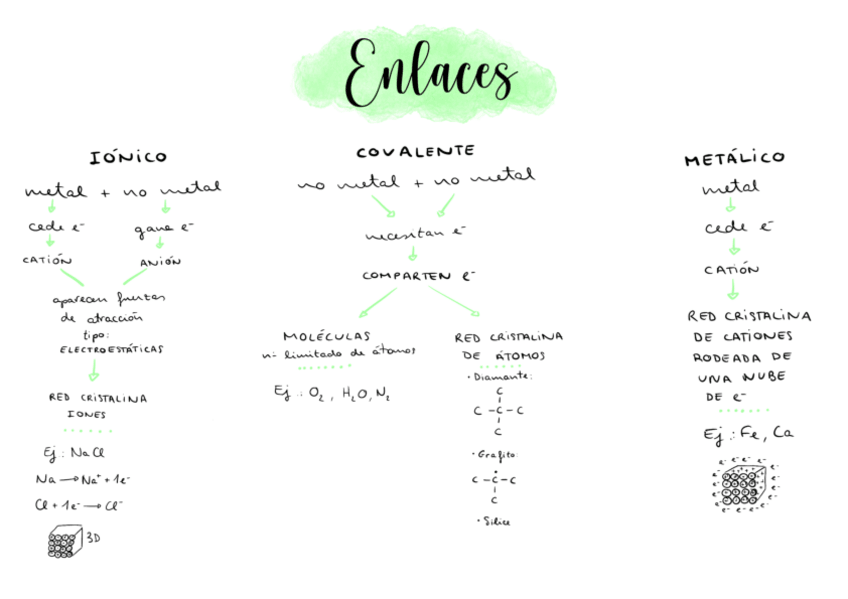 Enlaces
IÓNICO
metal + no metal
cede e⁻
gana e⁻
CATIÓN
ANIÓN
aparecen fuerzas
de atracción
tipo:
ELECTROESTÁTICAS
RED CRISTALINA
IONES
Ej.: NaCl
Na → Na⁺ + 1e⁻
Cl + 1e⁻ → Cl⁻
3D
COVALENTE
no metal + no metal
necesitan e⁻
COMPARTEN e⁻
MOLÉCULAS
nº limitado de átomos
Ej.: O₂, H₂O, N₂
RED CRISTALINA
DE ÁTOMOS
· Diamante:
C
C - C - C
C
· Grafito
C - C - C
C
· Sílice
METÁLICO
metal
cede e⁻
CATIÓN
RED CRISTALINA
DE CATIONES
RODEADA DE
UNA NUBE
DE e⁻
Ej.: Fe, Ca
e⁻ e⁻ e⁻ e⁻